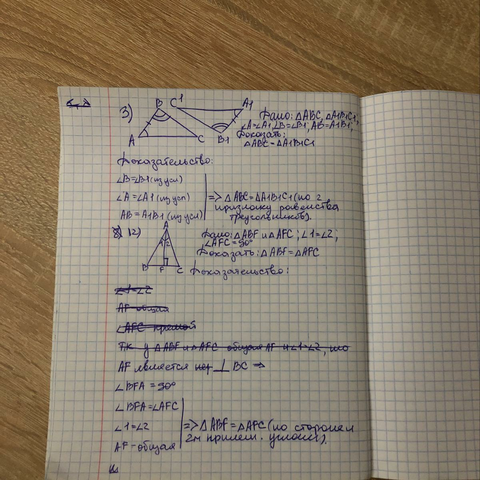 3)
B C1 A1
A C B1
Дано: △ABC, △A1B1C1,
∠A=∠A1, ∠B=∠B1, AB=A1B1,
Доказать:
△ABC=△A1B1C1
Доказательство:
∠B=∠B1 (из усл)
∠A=∠A1 (из усл)
AB=A1B1 (из усл)
=> △ABC=△A1B1C1 (по 2
признаку равенства
треугольников).
12)
A
1 2
B F C
Дано: △ABF и △AFC; ∠1=∠2;
∠AFC=90°
Доказать: △ABF=△AFC
Доказательство:
∠1=∠2
AF общая
∠AFC прямой
Тк у △ABF и △AFC общая AF и ∠1=∠2, то
AF является ⊥ BC =>
∠BFA=90°
∠BFA=∠AFC
∠1=∠2
AF-общая
=> △ABF=△AFC (по стороне и
2м прилеж. углам).